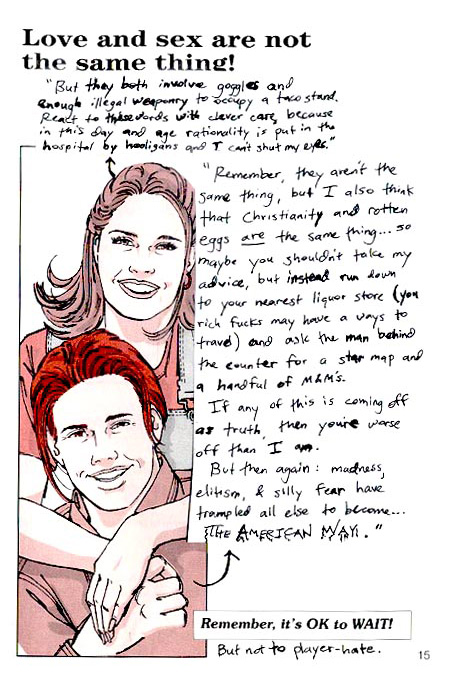 Love and sex are not
the same thing!
"But they both involve goggles and
enough illegal weaponry to occupy a taco stand.
React to these words with clever care, because
in this day and age rationality is put in the
hospital by hooligans and I can't shut my eyes."
"Remember, they aren't the
same thing, but I also think
that Christianity and rotten
eggs are the same thing... so
maybe you shouldn't take my
advice, but instead run down
to your nearest liquor store (you
rich fucks may have a ways to
travel) and ask the man behind
the counter for a star map and
a handful of M&M's.
If any of this is coming off
as truth, then you're worse
off than I am.
But then again: madness,
elitism, & silly fear have
trampled all else to become...
THE AMERICAN WAY."
Remember, it's OK to WAIT!
But not to player-hate.
15